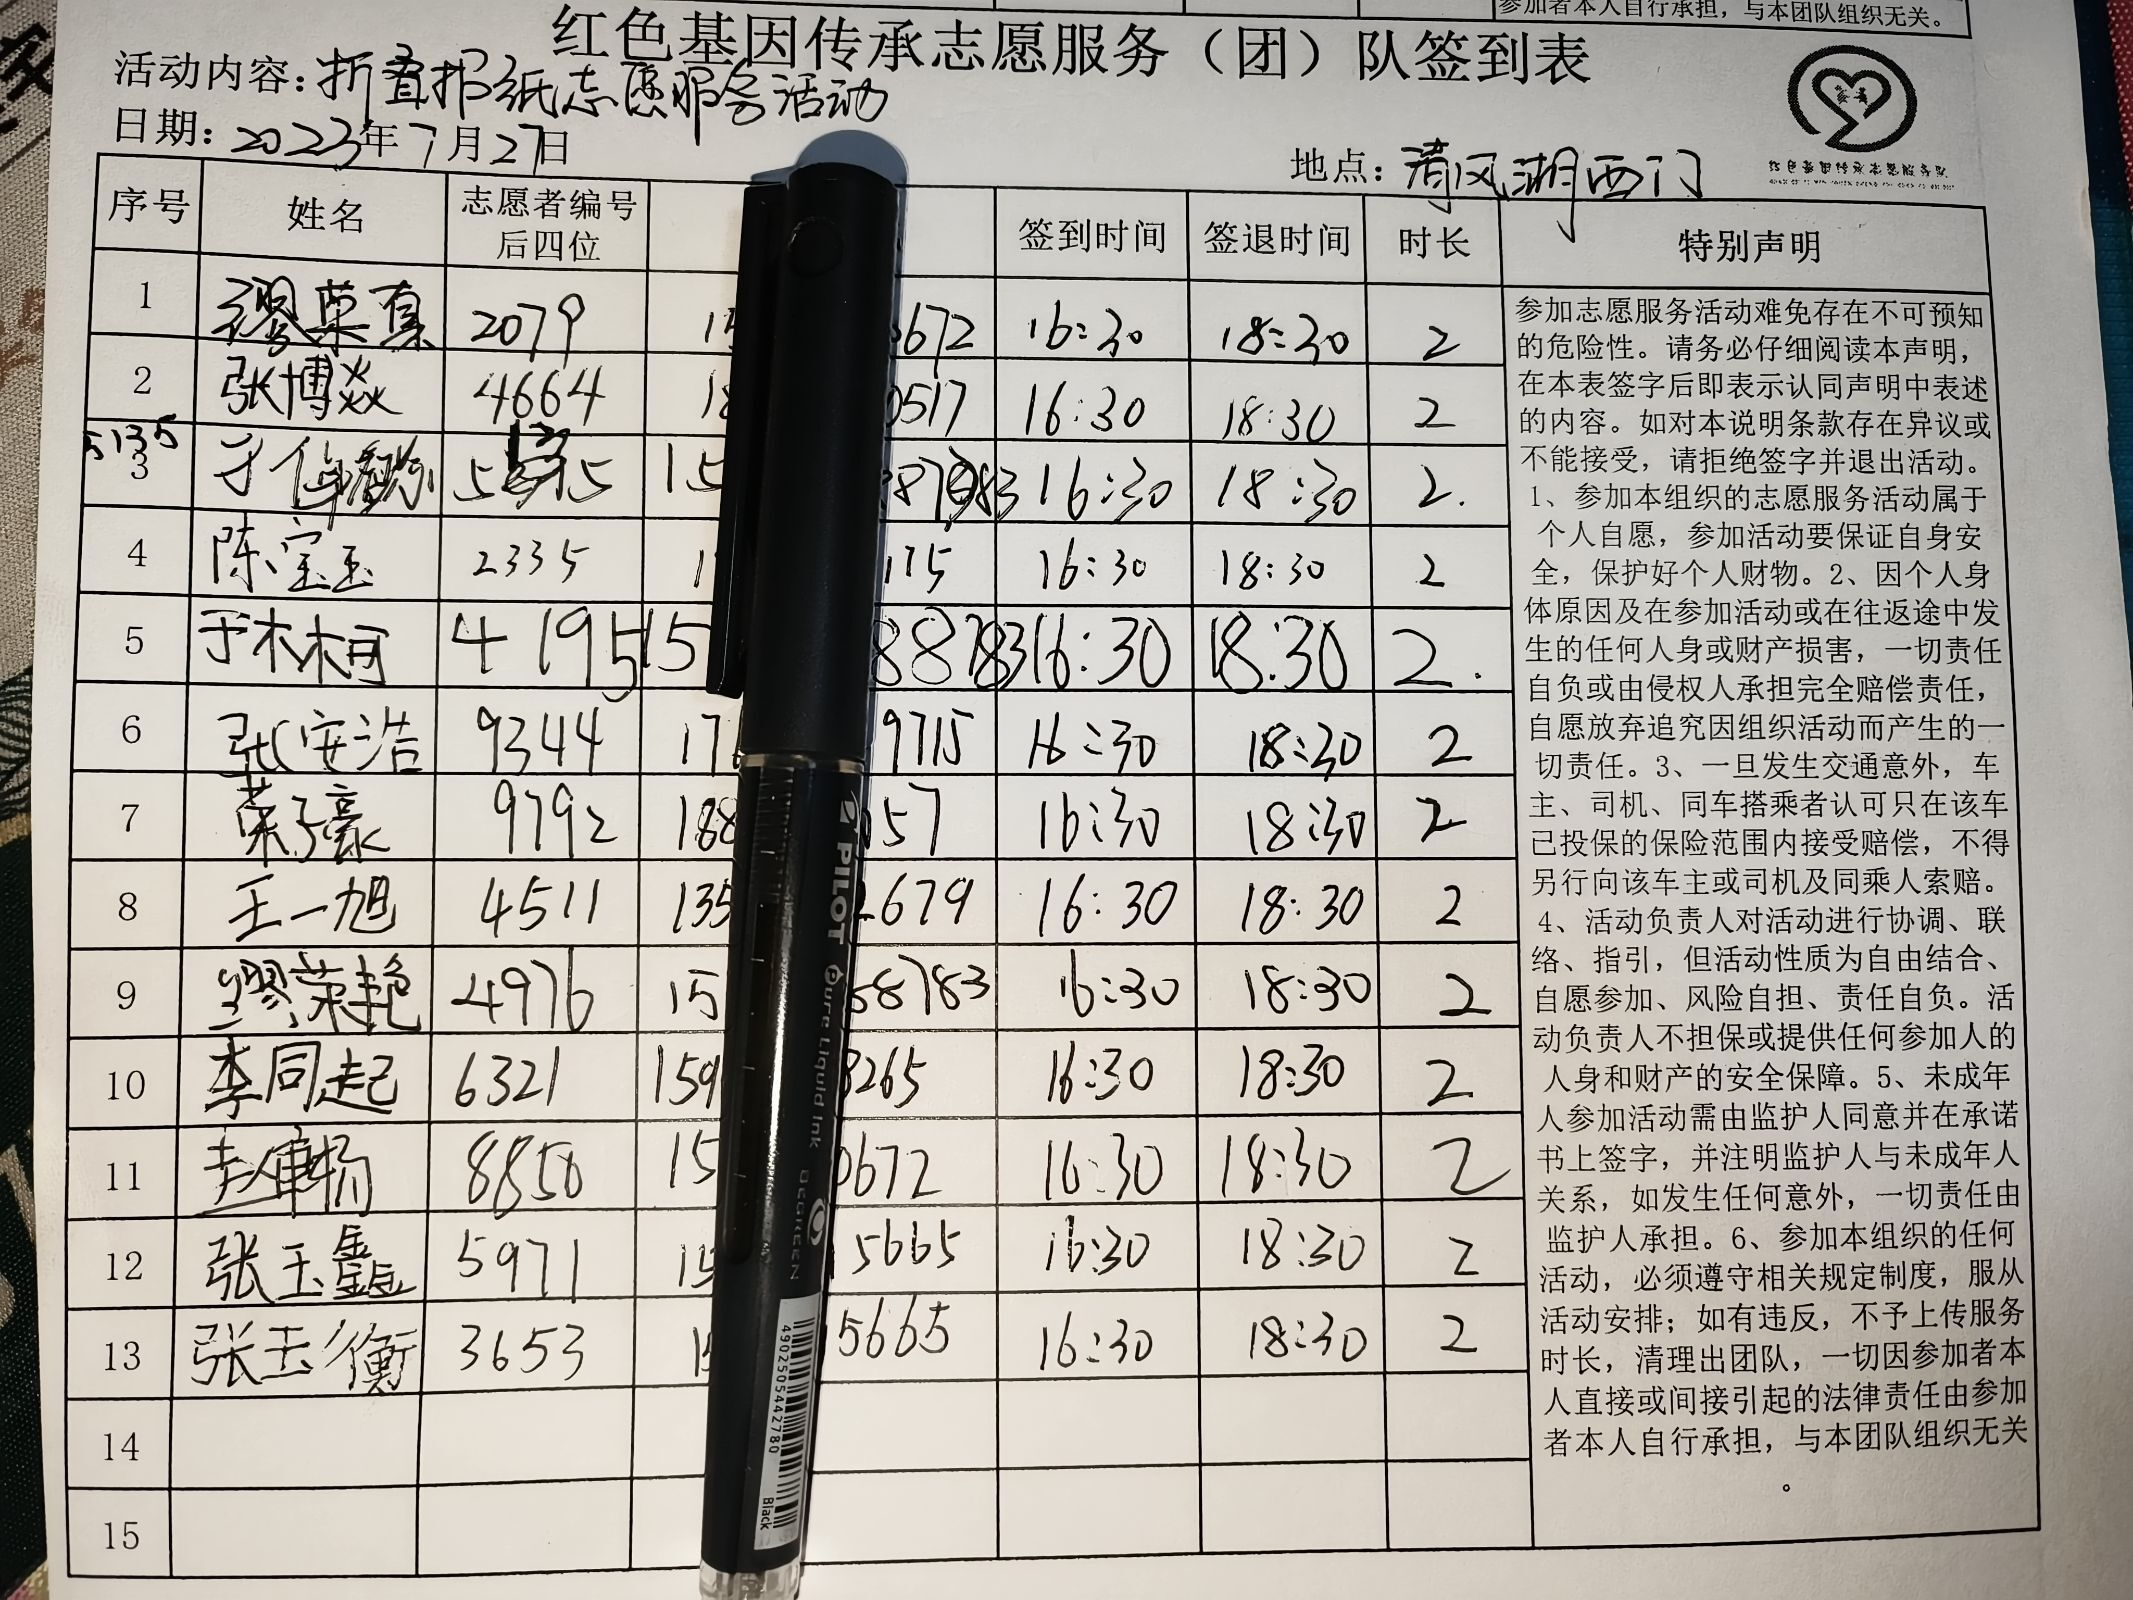 参加者本人自行承担，与本团队组织无关。
红色基因传承志愿服务（团）队签到表
活动内容：折叠报纸志愿服务活动
日期：2023年7月27日
地点：清风湖西门
序号 姓名 志愿者编号后四位 签到时间 签退时间 时长 特别声明
1 缪荣真 2079 15 672 16:30 18:30 2
2 张博焱 4664 18 0517 16:30 18:30 2
5135
3 15 16:30 18:30 2.
4 陈宝玉 2335 1 175 16:30 18:30 2
5 于木木柯 4195 15 88783 16:30 18:30 2.
6 张安浩 9344 17 9715 16:30 18:30 2
7 荣子豪 9792 188 057 16:30 18:30 2
8 王一旭 4511 135 2679 16:30 18:30 2
9 缪荣艳 4976 15 58783 16:30 18:30 2
10 李同起 6321 159 3265 16:30 18:30 2
11 8850 15 0672 16:30 18:30 2
12 张玉鑫 5971 15 5665 16:30 18:30 2
13 张玉衡 3653 15 5665 16:30 18:30 2
14
15
参加志愿服务活动难免存在不可预知
的危险性。请务必仔细阅读本声明，
在本表签字后即表示认同声明中表述
的内容。如对本说明条款存在异议或
不能接受，请拒绝签字并退出活动。
1、参加本组织的志愿服务活动属于
个人自愿，参加活动要保证自身安
全，保护好个人财物。2、因个人身
体原因及在参加活动或在往返途中发
生的任何人身或财产损害，一切责任
自负或由侵权人承担完全赔偿责任，
自愿放弃追究因组织活动而产生的一
切责任。3、一旦发生交通意外，车
主、司机、同车搭乘者认可只在该车
已投保的保险范围内接受赔偿，不得
另行向该车主或司机及同乘人索赔。
4、活动负责人对活动进行协调、联
络、指引，但活动性质为自由结合、
自愿参加、风险自担、责任自负。活
动负责人不担保或提供任何参加人的
人身和财产的安全保障。5、未成年
人参加活动需由监护人同意并在承诺
书上签字，并注明监护人与未成年人
关系，如发生任何意外，一切责任由
监护人承担。6、参加本组织的任何
活动，必须遵守相关规定制度，服从
活动安排；如有违反，不予上传服务
时长，清理出团队，一切因参加者本
人直接或间接引起的法律责任由参加
者本人自行承担，与本团队组织无关
。
PILOT Pure Liquid Ink BEGREEN
4902505442780
Black